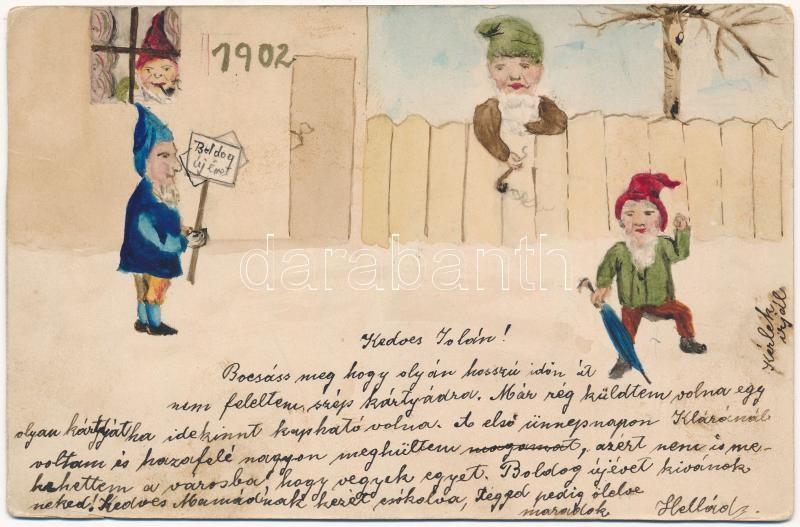 1902
Boldog
új évet
darabanth
Kedves Jolán!
Bocsáss meg hogy olyan hosszú időn át
nem feleltem szép kártyádra. Már rég küldtem volna egy
olyan kártyát ha idekinnt kapható volna. A első ünnepnapon Kláránál
voltam és hazafelé nagyon meghültem magamat, azért nem is me-
hettem a városba hogy vegyek egyet. Boldog újévet kivánok
neked! Kedves Mamádnak kezét csókolva, Téged pedig ölelve
maradok Hellád
Kérlek
irjál